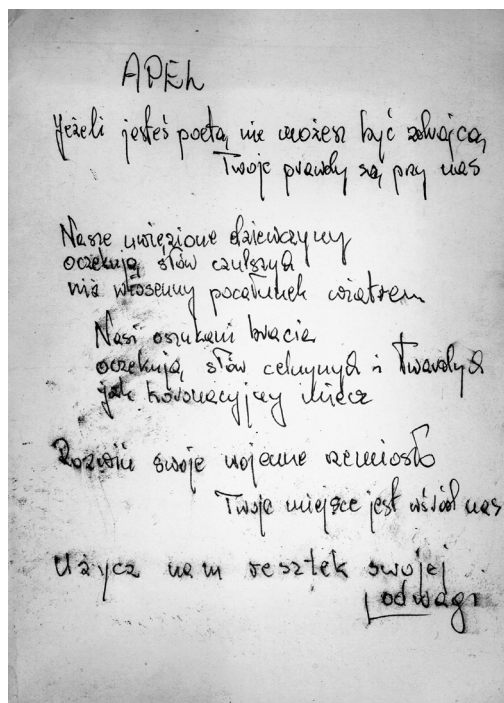 APEL
Jeżeli jesteś poetą nie możesz być zdrajcą
Twoje prawdy są przy nas
Nasze uwięzione dziewczyny
oczekują słów czulszych
niż wiosenny pocałunek wiatrem
Nasi oszukani bracia
oczekują słów celnych i twardych
jak koronacyjny miecz
Rozwiń swoje wojenne rzemiosło
Twoje miejsce jest wśród nas
Użycz nam resztek swojej
odwagi